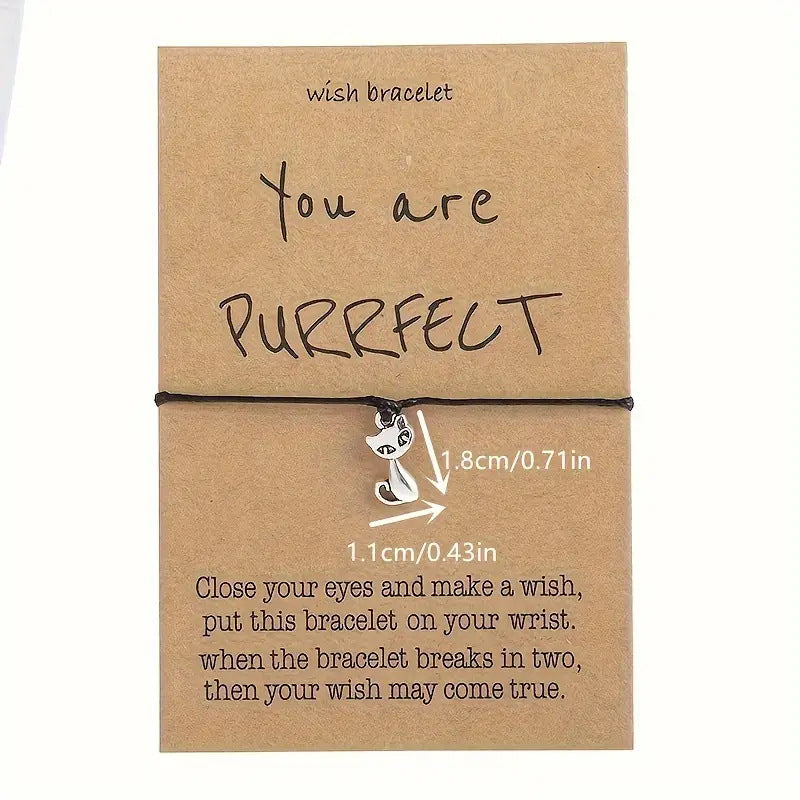 wish bracelet
You are
PURRFECT
1.8cm/0.71in
1.1cm/0.43in
Close your eyes and make a wish,
put this bracelet on your wrist.
when the bracelet breaks in two,
then your wish may come true.